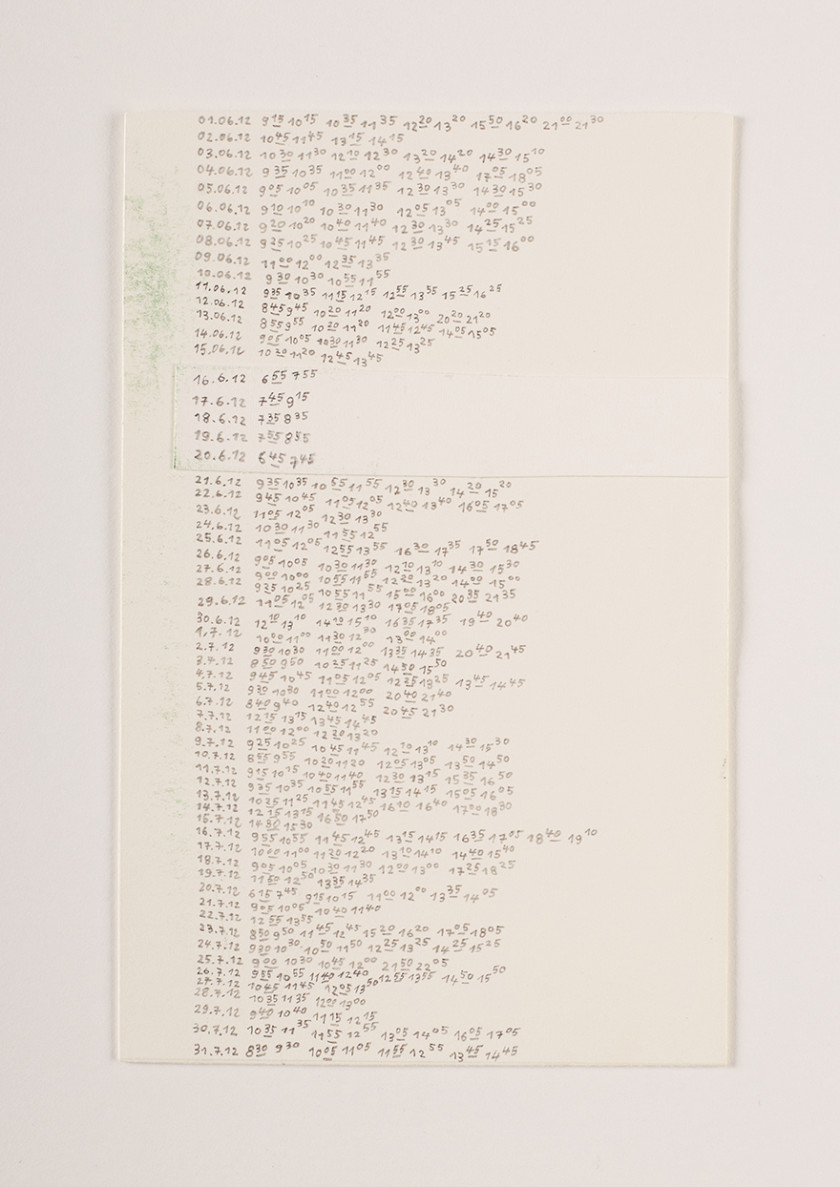 01.06.12 9 15 10 15 10 35 11 35 12 20 13 20 15 50 16 20 21 00 21 30
02.06.12 10 45 11 45 13 15 14 15
03.06.12 10 30 11 30 12 10 12 30 13 20 14 20 14 30 15 10
04.06.12 9 35 10 35 11 00 12 00 12 40 13 40 17 05 18 05
05.06.12 9 05 10 05 10 35 11 35 12 30 13 30 14 30 15 30
06.06.12 9 10 10 10 10 30 11 30 12 05 13 05 14 00 15 00
07.06.12 9 20 10 20 10 40 11 40 12 30 13 30 14 25 15 25
08.06.12 9 25 10 25 10 45 11 45 12 30 13 45 15 15 16 00
09.06.12 11 00 12 00 12 35 13 35
10.06.12 9 30 10 30 10 55 11 55
11.06.12 9 35 10 35 11 15 12 15 12 55 13 55 15 25 16 25
12.06.12 8 45 9 45 10 20 11 20 12 00 13 00 20 20 21 20
13.06.12 8 55 9 55 10 20 11 20 11 45 12 45 14 05 15 05
14.06.12 9 05 10 05 10 30 11 30 12 25 13 25
15.06.12 10 20 11 20 12 45 13 45
16.6.12 6 55 7 55
17.6.12 7 45 9 15
18.6.12 7 35 8 35
19.6.12 7 55 8 55
20.6.12 6 45 7 45
21.6.12 9 35 10 35 10 55 11 55 12 30 13 30 14 20 15 20
22.6.12 9 45 10 45 11 05 12 05 12 40 13 40 16 05 17 05
23.6.12 11 05 12 05 12 30 13 30
24.6.12 10 30 11 30 11 55 12 55
25.6.12 11 05 12 05 12 55 13 55 16 30 17 35 17 50 18 45
26.6.12 9 05 10 05 10 30 11 30 12 10 13 10 14 30 15 30
27.6.12 9 00 10 00 10 55 11 55 12 20 13 20 14 00 15 00
28.6.12 9 35 10 25 10 55 11 55 15 00 16 00 20 35 21 35
29.6.12 11 05 12 05 12 30 13 30 17 05 18 05
30.6.12 12 10 13 10 14 10 15 10 16 35 17 35 19 40 20 40
1.7.12 10 00 11 00 11 30 12 30 13 00 14 00
2.7.12 9 30 10 30 11 00 12 00 13 35 14 35 20 40 21 45
3.7.12 8 50 9 50 10 25 11 25 14 50 15 50
4.7.12 9 45 10 45 11 05 12 05 12 25 13 25 13 45 14 45
5.7.12 9 30 10 30 11 00 12 00 20 40 21 40
6.7.12 8 40 9 40 12 40 12 55 20 45 21 30
7.7.12 12 15 13 15 13 45 14 45
8.7.12 11 00 12 00 12 20 13 20
9.7.12 9 25 10 25 10 45 11 45 12 10 13 10 14 30 15 30
10.7.12 8 55 9 55 10 20 11 20 12 05 13 05 13 50 14 50
11.7.12 9 15 10 15 10 40 11 40 12 30 13 15 15 35 16 50
12.7.12 9 35 10 35 10 55 11 55 13 15 14 15 15 05 16 05
13.7.12 10 25 11 25 11 45 12 45 16 10 16 40 17 00 18 30
14.7.12 12 15 13 15 16 50 17 50
15.7.12 14 30 15 30
16.7.12 9 55 10 55 11 45 12 45 13 15 14 15 16 35 17 05 18 40 19 10
17.7.12 10 00 11 00 11 20 12 20 13 10 14 10 14 40 15 40
18.7.12 9 05 10 05 10 30 11 30 12 00 13 00 17 25 18 25
19.7.12 11 50 12 50 13 35 14 35
20.7.12 6 15 7 45 9 15 10 15 11 00 12 00 13 35 14 05
21.7.12 9 05 10 05 10 40 11 40
22.7.12 12 55 13 55
23.7.12 8 50 9 50 11 45 12 45 15 20 16 20 17 05 18 05
24.7.12 9 30 10 30 10 50 11 50 12 25 13 25 14 25 15 25
25.7.12 9 00 10 30 10 45 12 00 21 50 22 05
26.7.12 9 55 10 55 11 40 12 40 12 55 13 55 14 50 15 50
27.7.12 10 45 11 45 12 05 13 50
28.7.12 10 35 11 35 12 00 13 00
29.7.12 9 40 10 40 11 15 12 15
30.7.12 10 35 11 35 11 55 12 55 13 05 14 05 16 05 17 05
31.7.12 8 30 9 30 10 05 11 05 11 55 12 55 13 45 14 45